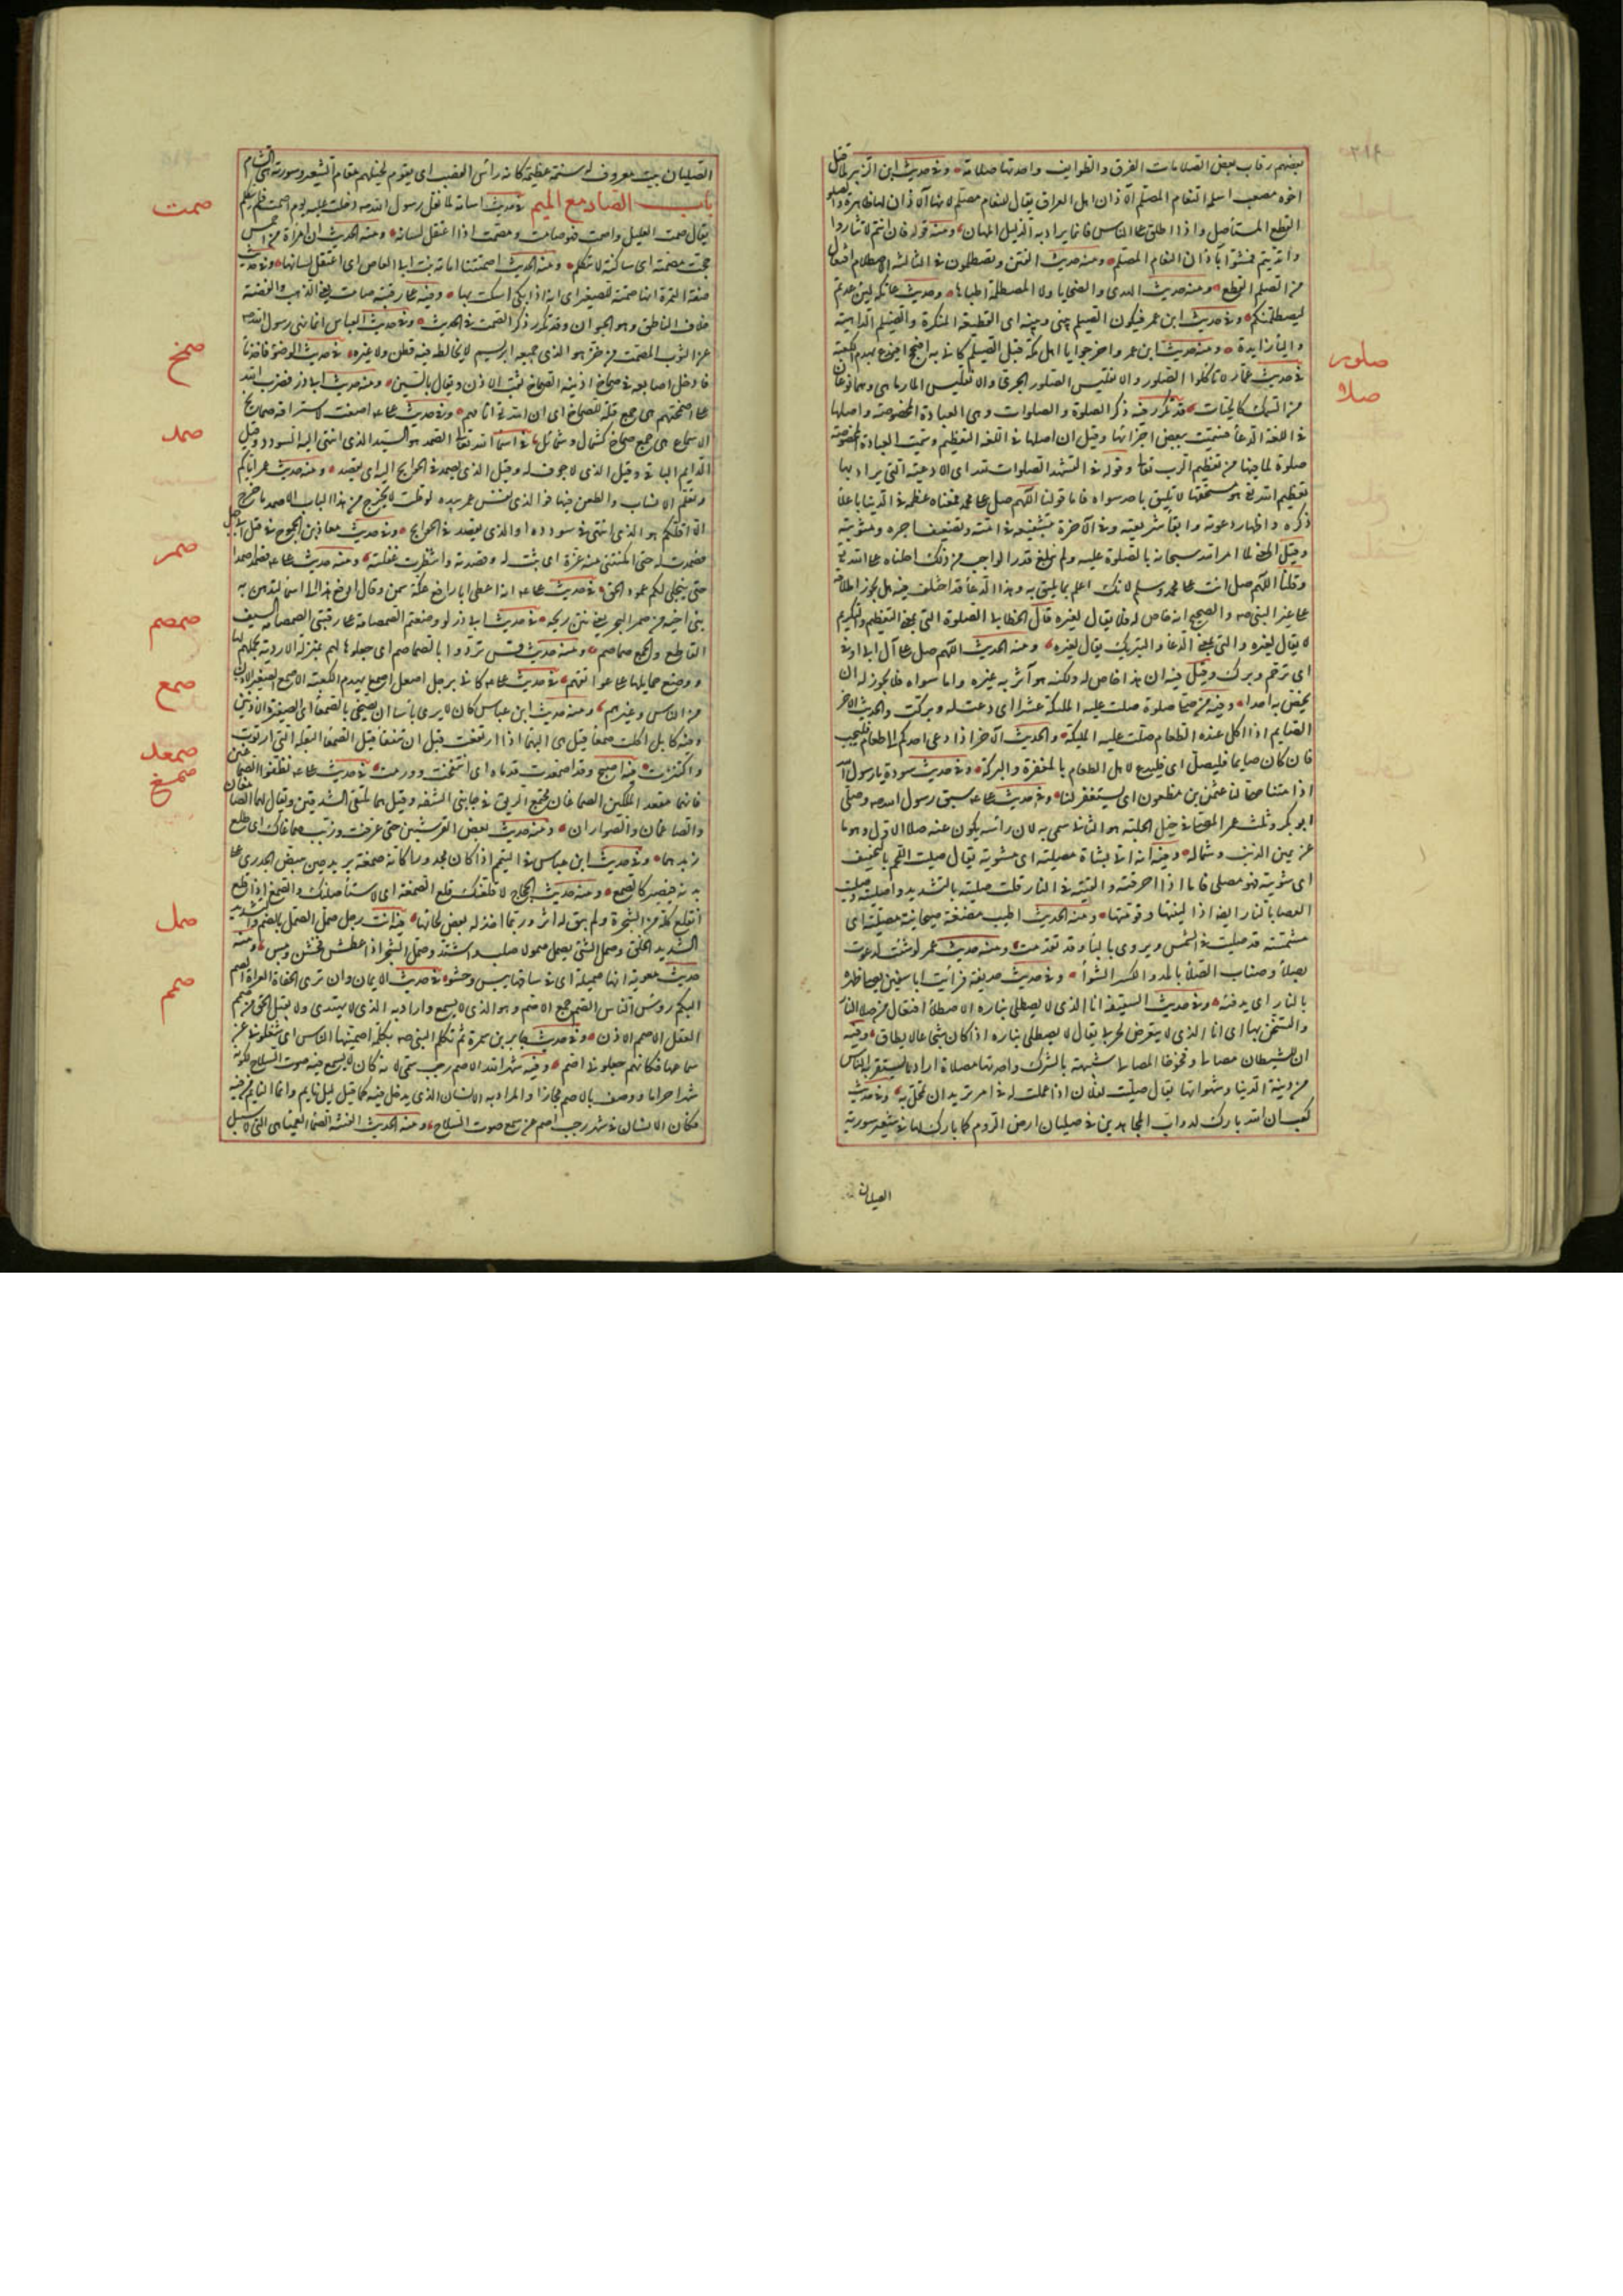 بعضهم رقاب بعض الصلامات الفرق والطوايف واحدتها صلامة وفى حديث ابن الزبير لما قتل
اخوه مصعب اسلمه النعام المصلم الآذان اهل العراق يقال للنعام مصلم لانها لا آذان لها ظاهرة والصلم
القطع المستأصل واذا اطلق على الناس فانما يراد به الذليل المهان ومنه قوله فان انتم لم تثاروا
واتديتم فمشوا بآذان النعام المصلم ومنه حديث الفتن وتصطلمون فى الثالثة الاصطلام افتعال
من الصلم القطع ومنه حديث الهدى والضحايا ولا المصطلمة اطباؤها وحديث عاتكة لئن عدتم
ليصطلمنكم وفى حديث ابن عمر فيكون الصيلم بينى وبينه اى القطيعة المنكرة والصيلم الداهية
والياء زايدة ومنه حديث ابن عمر واخرجوا يا اهل مكة قبل الصيلم كانى به افيحج افيدع يهدم الكعبة
صلور
فى حديث عمار لا تاكلوا الصلور والانقليس الصلور الجرى والانقليس المارماهى وهما نوعان
صلا
من السمك كالحيات قد تكرر فيه ذكر الصلوة والصلوات وهى العبادة المخصوصة واصلها
فى اللغة الدعاء فسميت ببعض اجزائها وقيل ان اصلها فى اللغة التعظيم وسميت العبادة المخصوصة
صلوة لما فيها من تعظيم الرب تعالى وقوله فى التشهد الصلوات لله اى الادعية التى يراد بها
تعظيم الله هو مستحقها لا تليق باحد سواه فاما قولنا اللهم صل على محمد فمعناه عظمه فى الدنيا باعلاء
ذكره واظهار دعوته وابقاء شريعته وفى الآخرة بتشفيعه فى امته وتضعيف اجره ومثوبته
وقيل المعنى لما امر الله سبحانه بالصلوة عليه ولم نبلغ قدر الواجب من ذلك احلناه على الله
وقلنا اللهم صل انت على محمد وسلم لانك اعلم بما يليق به وهذا الدعاء قد اختلف فيه هل يجوز اطلاقه
على غير النبى صه والصحيح انه خاص له فلا يقال لغيره قال الخطابى الصلوة التى بمعنى التعظيم والتكريم
لا يقال لغيره والتى بمعنى الدعاء والتبريك يقال لغيره ومنه الحديث اللهم صل على آل ابى اوفى
اى ترحم وبرك وقيل فيه ان هذا خاص له ولكنه هو آثر به غيره واما سواه فلا يجوز له ان
يخص به احدا وفيه من صلى على صلوة صلت عليه الملئكة عشرا اى دعت له وبركت والحديث الآخر
الصايم اذا اكل عنده الطعام صلت عليه الملئكة والحديث الآخر اذا دعى احدكم الى طعام فليجب
فان كان صايما فليصل اى فليدع لاهل الطعام بالمغفرة والبركة وفى حديث سودة يا رسول الله
اذا متنا صلى لنا عثمن بن مظعون اى يستغفر لنا وفى حديث على سبق رسول الله صه وصلى
ابو بكر وثلث عمر المصلى فى خيل الحلبة هو الثانى سمى به لان راسه يكون عند صلا الاول وهو ما
عن يمين الذنب وشماله وفيه انه اتى بشاة مصلية اى مشوية يقال صليت اللحم بالتخفيف
اى شويته فهو مصلى فاما اذا احرقته والقيته فى النار قلت صليته بالتشديد واصليته وصليت
العصا بالنار ايضا اذا لينتها وقومتها ومنه الحديث اطيب مضغة صيحانية مصلية اى
مشمسة قد صليت فى الشمس ويروى بالباء وقد تقدمت ومنه حديث عمر لو شئت لدعوت
بصلاء وصناب الصلاء بالمد والكسر الشواء وفى حديث حذيفة فرأيت ابا سفين يصلى ظهره
بالنار اى يدفئه وفى حديث السقيفة انا الذى لا يصطلى بناره الاصطلاء افتعال من صلا النار
والتسخن بها اى انا الذى لا يتعرض لحربى يقال لا يصطلى بناره اذا كان شجاعا لا يطاق وفيه
ان للشيطان مصالى وفخوخا المصالى شبيهة بالشرك واحدتها مصلاة اراد ما يستفز به الناس
من زينة الدنيا وشهواتها يقال صليت لفلان اذا عملت له فى امر تريد ان تمحل به وفى حديث
كعب ان الله بارك لدواب المجاهدين فى صليان ارض الروم كما بارك لها فى شعير سورية
الصليان
الصليان نبت معروف له سنمة عظيمة كانه رأس القصب اى يقوم لخيلهم مقام الشعير وسورية هى الشام
صمت
باب الصاد مع الميم فى حديث اسامة لما ثقل رسول الله صه دخلت عليه يوم اصمت فلم يتكلم
يقال صمت العليل واصمت فهو صامت ومصمت اذا اعتقل لسانه ومنه الحديث ان امرأة من احمس
حجت مصمتة اى ساكتة لا تتكلم ومنه الحديث اصمتت امامة بنت ابى العاص اى اعتقل لسانها وفى حديث
صفة التمرة انها صمتة للصغير اى انه اذا بكى اسكت بها وفيه على رقبته صامت يعنى الذهب والفضة
خلاف الناطق وهو الحيوان وقد تكرر ذكر الصمت فى الحديث وفى حديث العباس انما نهى رسول الله صه
صمخ
عن الثوب المصمت من خز هو الذى جميعه ابريسم لا يخالطه فيه قطن ولا غيره فى حديث الوضوء فاخذ ماء
فادخل اصابعه فى صماخ اذنيه الصماخ ثقب الاذن ويقال بالسين ومنه حديث ابى ذر فضرب الله
على اصمختهم هى جمع قلة للصماخ اى ان الله انامهم وفى حديث على اصغت لاستراقه صمايخ
صمد
الاسماع هى جمع صماخ كشمال وشمائل فى اسماء الله تعالى الصمد هو السيد الذى انتهى اليه السودد وقيل
الدايم الباقى وقيل الذى لا جوف له وقيل الذى يصمد فى الحوايج اليه اى يقصد ومنه حديث عمر اياكم
وتعلم الانساب والطعن فيها فو الذى نفس عمر بيده لو قلت لا يخرج من هذا الباب الا صمد ما خرج
الا اقلكم هو الذى انتهى فى سودده او الذى يقصد فى الحوايج وفى حديث معاذ بن الجموح فى قتل ابى جهل
صمر
فصمدت له حتى امكنتنى منه غرة اى ثبت له وقصدته وانتظرت غفلته ومنه حديث على فصمدا صمدا
حتى ينجلى لكم عمود الحق فى حديث على انه اعطى ابا رافع عكة سمن وقال ادفع هذا الى اسماء لتدهن به
صمصم
بنى اخيه من صمر البحر يعنى نتن ريحه فى حديث ابى ذر لو وضعتم الصمصامة على رقبتى الصمصامة السيف
القاطع والجمع صماصم ومنه حديث قس تردوا بالصماصم اى جعلوها لهم بمنزلة الاردية لحملهم لها
صمع
ووضع حمايلها على عواتقهم فى حديث على كانى برجل اصعل اصمع يهدم الكعبة الاصمع الصغير الاذن
من الناس وغيرهم ومنه حديث ابن عباس كان لا يرى بأسا ان يضحى بالصمعاء اى الصغيرة الاذنين
وفيه كابل اكلت صمعاء قيل هى البهمى اذا ارتفعت قبل ان تتفقأ قيل الصمعاء البقلة التى ارتوت
صمعد
صمغ
واكتنزت فيه اصبح وقد اصمعدت قدماه اى انتفخت وورمت فى حديث على نظفوا الصماغين
فانهما مقعد الملكين الصماغان مجتمع الريق فى جانبى الشفة وقيل هما ملتقى الشدقين ويقال لهما الصامغان
والصاغمان والصواران ومنه حديث بعض القرشيين حتى عرقت وزبب صماغاك اى طلع
زبدهما وفى حديث ابن عباس فى اليتيم اذا كان مجدورا كانه صمغة يريد حين يبيض الجدرى على
بدنه فيصير كالصمغ ومنه حديث الحجاج لاقلعنك قلع الصمغة اى لاستأصلنك والصمغ اذا قلع
صمل
انقلع كله من الشجرة ولم يبق له اثر وربما اخذ له بعض لحائها فيه انت رجل صمل الصمل بالضم والتشديد
الشديد الخلق وصمل الشئ يصمل صمولا صلب واشتد وصمل الشجر اذا عطش فخشن ويبس ومنه
صمم
حديث معوية انها صميلة اى فى ساقها يبس وخشونة فى حديث الايمان وان ترى الحفاة العراة الصم
البكم رؤس الناس الصم جمع الاصم وهو الذى لا يسمع واراد به الذى لا يهتدى ولا يقبل الحق من صمم
العقل لا صمم الاذن وفى حديث جابر بن سمرة ثم تكلم النبى صه بكلمة اصمنيها الناس اى شغلونى عن
سماعها فكانهم جعلونى اصم وفيه شهر الله الاصم رجب سمى لانه كان لا يسمع فيه صوت السلاح لكونه
شهرا حراما ووصف بالاصم مجازا والمراد به الانسان الذى يدخل فيه كما قيل ليل نايم وانما النايم من فيه
فكان الانسان فى شهر رجب اصم عن سمع صوت السلاح ومنه الحديث الفتنة الصماء العمياء هى التى لا سبيل